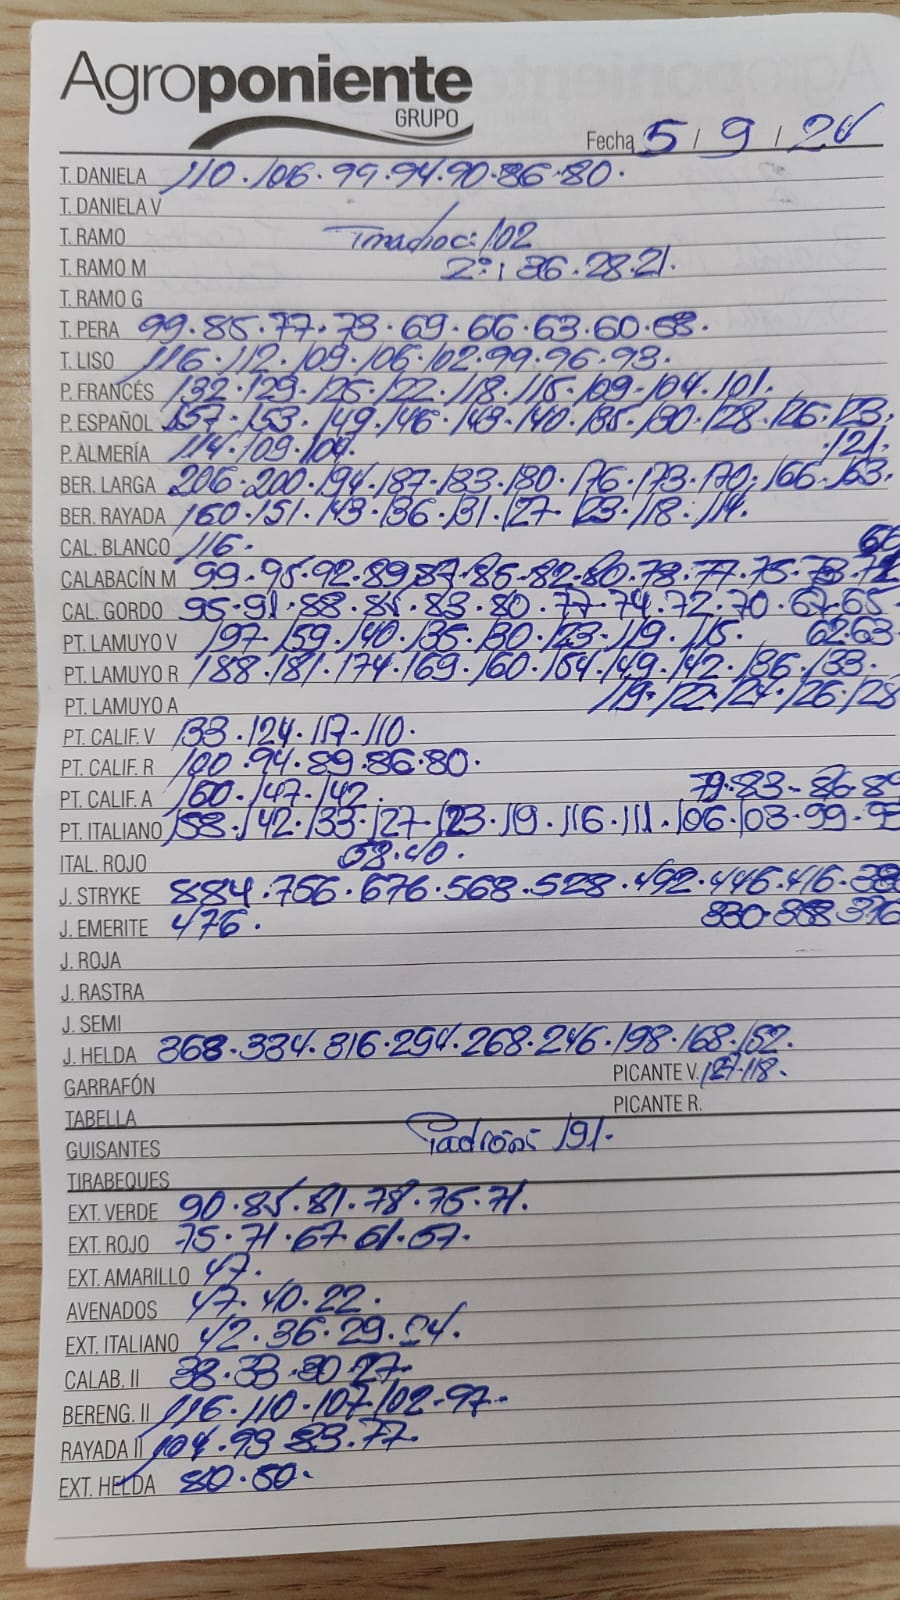 Agroponiente
GRUPO
Fecha 5 / 9 / 24
T. DANIELA 110. 106. 99. 94. 90. 86. 80.
T. DANIELA V
T. RAMO 102
T. RAMO M 2ª: 36. 28. 21.
T. RAMO G
T. PERA 99. 85. 77. 73. 69. 66. 63. 60. 58.
T. LISO 116. 112. 109. 106. 102. 99. 96. 93.
P. FRANCÉS 132. 129. 125. 122. 118. 115. 109. 104. 101.
P. ESPAÑOL 157. 153. 149. 146. 143. 140. 135. 130. 128. 126. 123.
121.
P. ALMERÍA 114. 109. 104.
BER. LARGA 206. 200. 194. 187. 183. 180. 176. 173. 170. 166. 163.
BER. RAYADA 160. 151. 143. 136. 131. 127. 123. 118. 114.
CAL. BLANCO 116.
CALABACÍN M 99. 95. 92. 89. 87. 86. 82. 80. 78. 77. 75. 73. 72
CAL. GORDO 95. 91. 88. 85. 83. 80. 77. 74. 72. 70. 67. 65
62. 63.
PT. LAMUYO V 197. 159. 140. 135. 130. 123. 119. 115.
PT. LAMUYO R 188. 181. 174. 169. 160. 154. 149. 142. 136. 133.
119. 122. 124. 126. 128
PT. LAMUYO A
PT. CALIF. V 133. 124. 117. 110.
PT. CALIF. R 100. 94. 89. 86. 80.
PT. CALIF. A 160. 147. 142.
79. 83. 86. 89
PT. ITALIANO 158. 142. 133. 127. 123. 119. 116. 111. 106. 103. 99. 95
ITAL. ROJO 58. 40.
J. STRYKE 884. 756. 676. 568. 528. 492. 446. 416.
J. EMERITE 476.
J. ROJA
J. RASTRA
J. SEMI
J. HELDA 368. 334. 316. 294. 268. 246. 198. 168. 152.
GARRAFÓN PICANTE V. 127. 118.
TABELLA PICANTE R.
GUISANTES Padrón: 191.
TIRABEQUES
EXT. VERDE 90. 85. 81. 78. 75. 71.
EXT. ROJO 75. 71. 67. 61. 57.
EXT. AMARILLO 47.
AVENADOS 47. 40. 22.
EXT. ITALIANO 42. 36. 29. 24.
CALAB. II 38. 33. 30. 27.
BERENG. II 116. 110. 107. 102. 97.
RAYADA II 104. 93. 83. 77.
EXT. HELDA 80. 50.